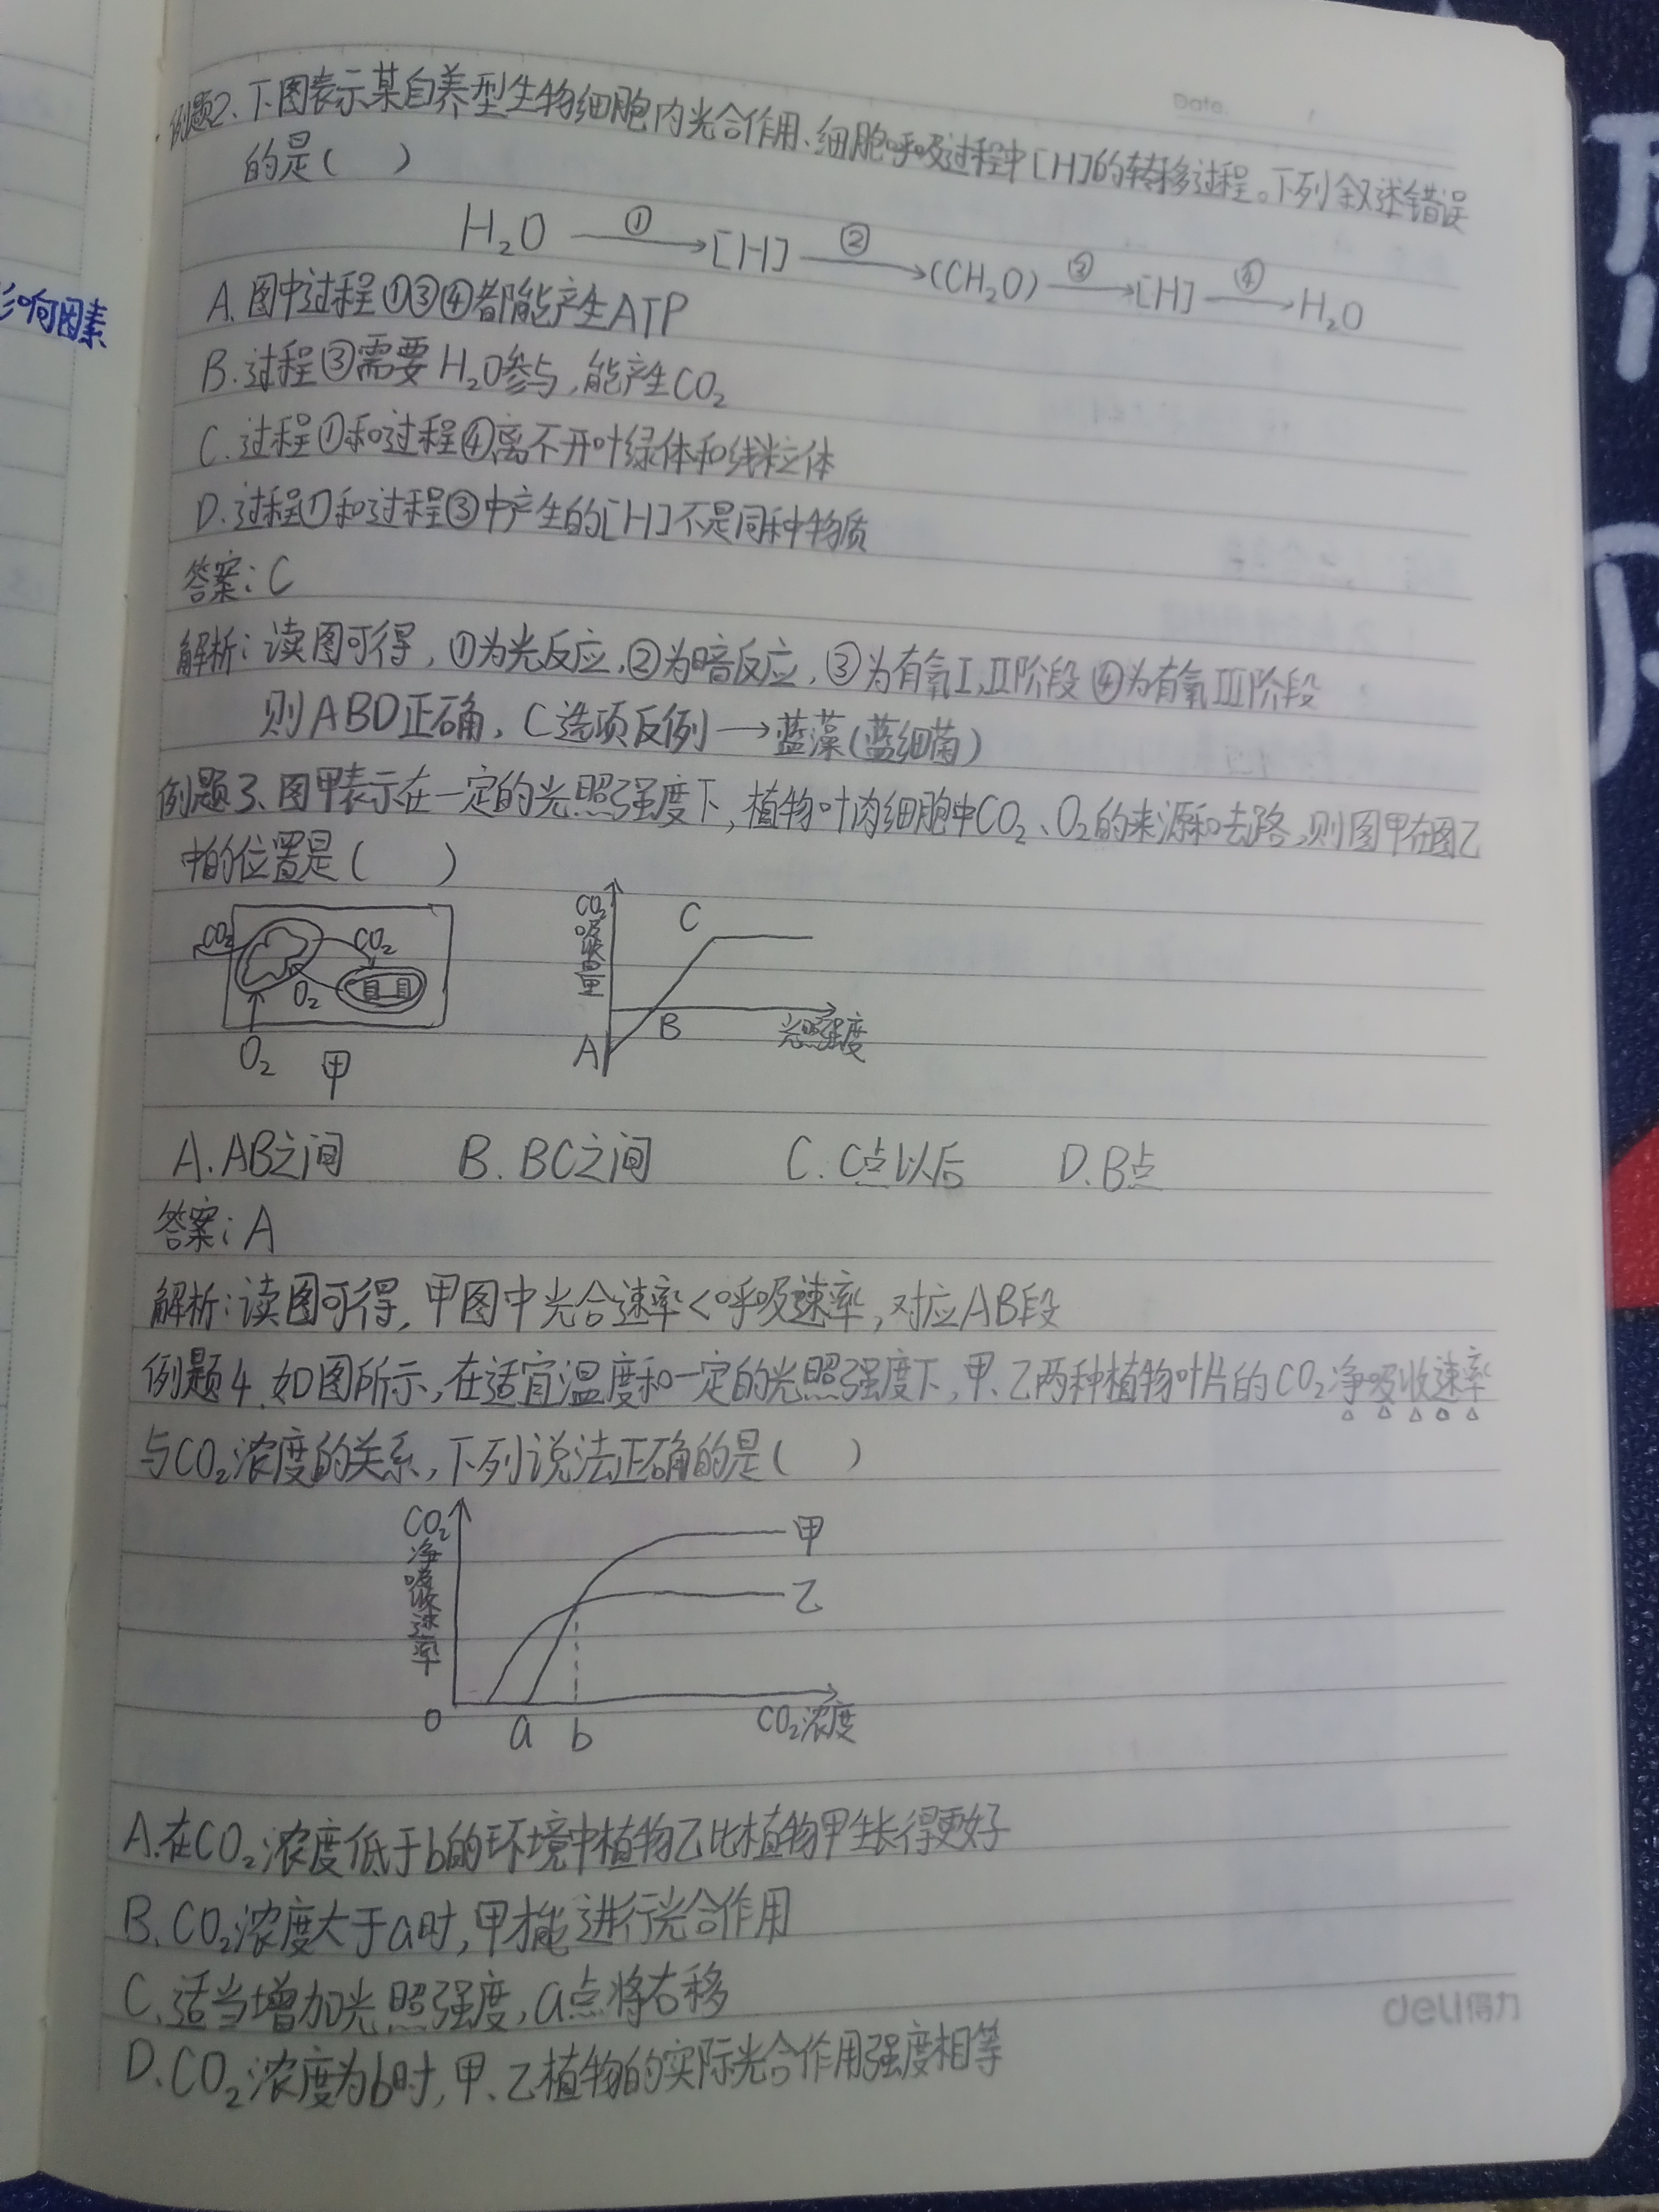 Date.
例题2、下图表示某自养型生物细胞内光合作用、细胞呼吸过程中[H]的转移过程。下列叙述错误
的是( )
H₂O ①→ [H] ②→ (CH₂O) ③→ [H] ④→ H₂O
影响因素
A.图中过程①③④都能产生ATP
B.过程③需要H₂O参与,能产生CO₂
C.过程①和过程④离不开叶绿体和线粒体
D.过程①和过程③中产生的[H]不是同种物质
答案:C
解析:读图可得,①为光反应,②为暗反应,③为有氧I,II阶段 ④为有氧III阶段
则ABD正确,C选项反例→蓝藻(蓝细菌)
例题3、图甲表示在一定的光照强度下,植物叶肉细胞中CO₂、O₂的来源和去路,则图甲在图乙
中的位置是( )
CO₂ CO₂
O₂
O₂ 甲
CO₂吸收量
C
B
A
光照强度
A.AB之间 B.BC之间 C.C点以后 D.B点
答案:A
解析:读图可得,甲图中光合速率<呼吸速率,对应AB段
例题4.如图所示,在适宜温度和一定的光照强度下,甲、乙两种植物叶片的CO₂净吸收速率
与CO₂浓度的关系,下列说法正确的是( )
CO₂净吸收速率
甲
乙
O a b CO₂浓度
A.在CO₂浓度低于b的环境中植物乙比植物甲生长得更好
B.CO₂浓度大于a时,甲才能进行光合作用
C.适当增加光照强度,a点将右移
D.CO₂浓度为b时,甲、乙植物的实际光合作用强度相等
deli得力